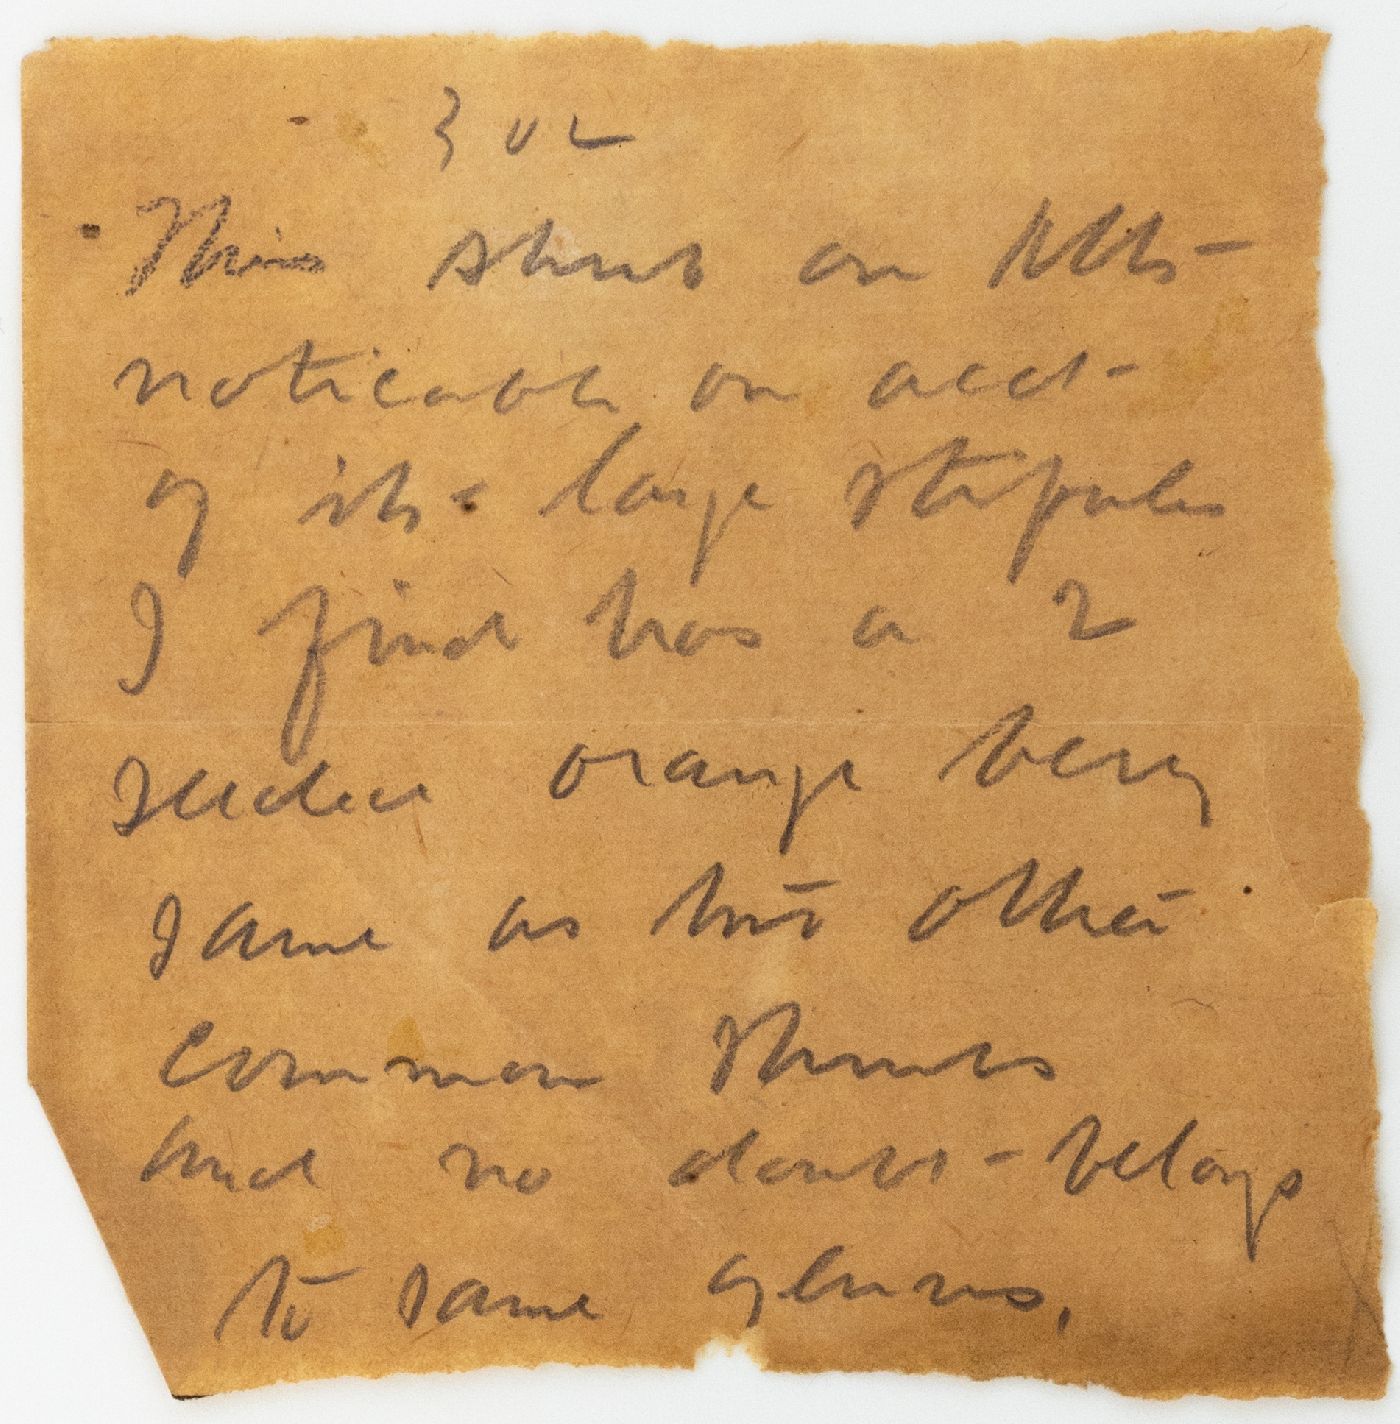 302
This shrub on hills -
noticable on acct -
of its large stipules
I find has a 2
seeded orange berry
same as two other
common shrubs
and no doubt - belongs
to same genus.